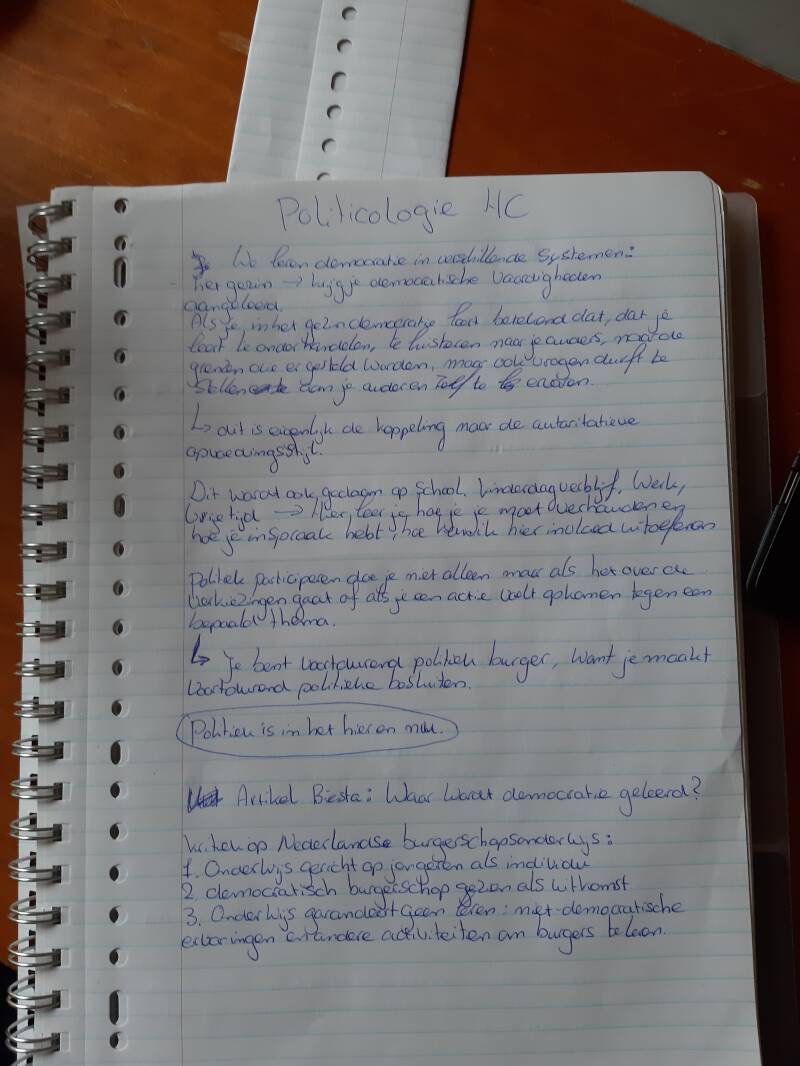 Politicologie HC
We leren democratie in verschillende systemen:
het gezin → krijg je democratische vaardigheden
aangeleerd.
Als je in het gezin democratie leert betekend dat, dat je
leert te onderhandelen, te luisteren naar je ouders, naar de
grenzen die er gesteld worden, maar ook vragen durft te
stellen aan je ouderen
↳ dit is eigenlijk de koppeling naar de autoritatieve
opvoedingsstijl.
Dit wordt ook gedaan op school, kinderdagverblijf, werk,
vrije tijd → hier leer je hoe je je moet verhouden en
hoe je inspraak hebt, hoe kan ik hier invloed uitoefenen
Politiek participeren doe je niet alleen maar als het over de
verkiezingen gaat of als je een actie voelt opkomen tegen een
bepaald thema.
↳ Je bent voortdurend politiek burger, want je maakt
voortdurend politieke besluiten.
Politiek is in het hier en nu.
Artikel Biesta: Waar wordt democratie geleerd?
kritiek op Nederlandse burgerschapsonderwijs:
1. Onderwijs gericht op jongeren als individu
2. democratisch burgerschap gezien als uitkomst
3. Onderwijs garandeert geen leren: niet-democratische
ervaringen andere activiteiten om burgers te leren.